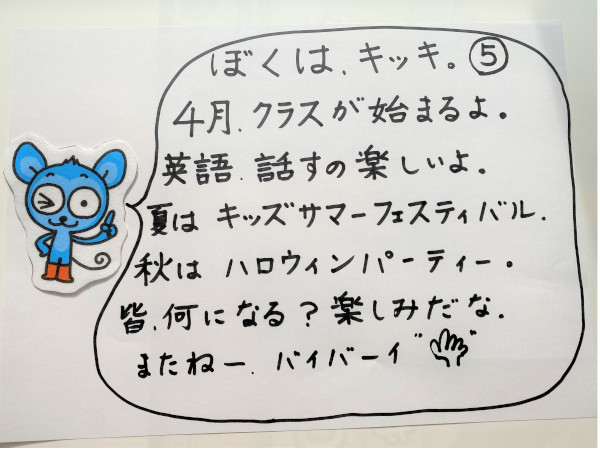 ぼくは、キッキ。⑤
4月、クラスが始まるよ。
英語、話すの楽しいよ。
夏は キッズサマーフェスティバル、
秋は ハロウィンパーティー。
皆、何になる？楽しみだな、
またねー、バイバーイ